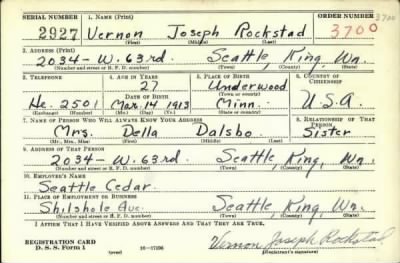 SERIAL NUMBER 1. NAME (Print) ORDER NUMBER
2927 Vernon Joseph Rockstad 3700 3700
(First) (Middle) (Last)
2. ADDRESS (Print)
2034-W. 63rd. Seattle, King, Wn.
(Number and street or R. F. D. number) (Town) (County) (State)
3. TELEPHONE 4. AGE IN YEARS 5. PLACE OF BIRTH 6. COUNTRY OF CITIZENSHIP
27 Underwood
DATE OF BIRTH (Town or county)
He. 2501 Mar. 14, 1913 Minn. U.S.A.
(Exchange) (Number) (Mo.) (Day) (Yr.) (State or country)
7. NAME OF PERSON WHO WILL ALWAYS KNOW YOUR ADDRESS 8. RELATIONSHIP OF THAT PERSON
Mrs. Della Dalsbo Sister
(Mr., Mrs., Miss) (First) (Middle) (Last)
9. ADDRESS OF THAT PERSON
2034-W. 63rd. Seattle, King, Wn.
(Number and street or R. F. D. number) (Town) (County) (State)
10. EMPLOYER'S NAME
Seattle Cedar.
11. PLACE OF EMPLOYMENT OR BUSINESS
Shilshole Ave. Seattle, King, Wn.
(Number and street or R. F. D. number) (Town) (County) (State)
I AFFIRM THAT I HAVE VERIFIED ABOVE ANSWERS AND THAT THEY ARE TRUE.
REGISTRATION CARD
D. S. S. Form 1 (over) 16—17106 Vernon Joseph Rockstad
(Registrant's signature)